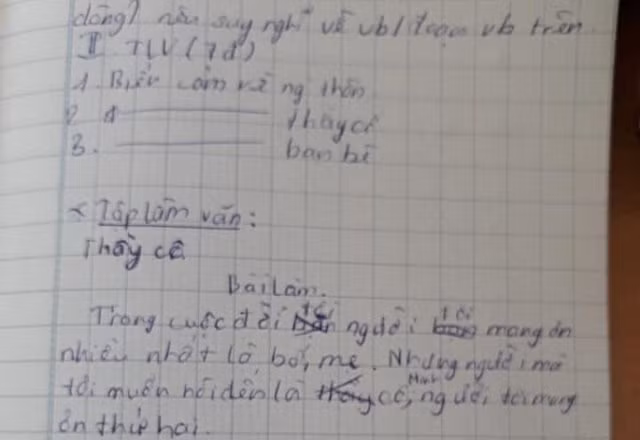 dòng) nêu suy nghĩ về vb/đoạn vb trên.
II TLV (7đ)
1. Biểu cảm về ng thân
2. thầy cô
3. bạn bè
< Tập làm văn:
Thầy cô
Bài làm.
Trong cuộc đời tôi người tôi mang ơn
nhiều nhất là bố, mẹ. Nhưng người mà
tôi muốn nói đến là cô, người tôi mang
ơn thứ hai.